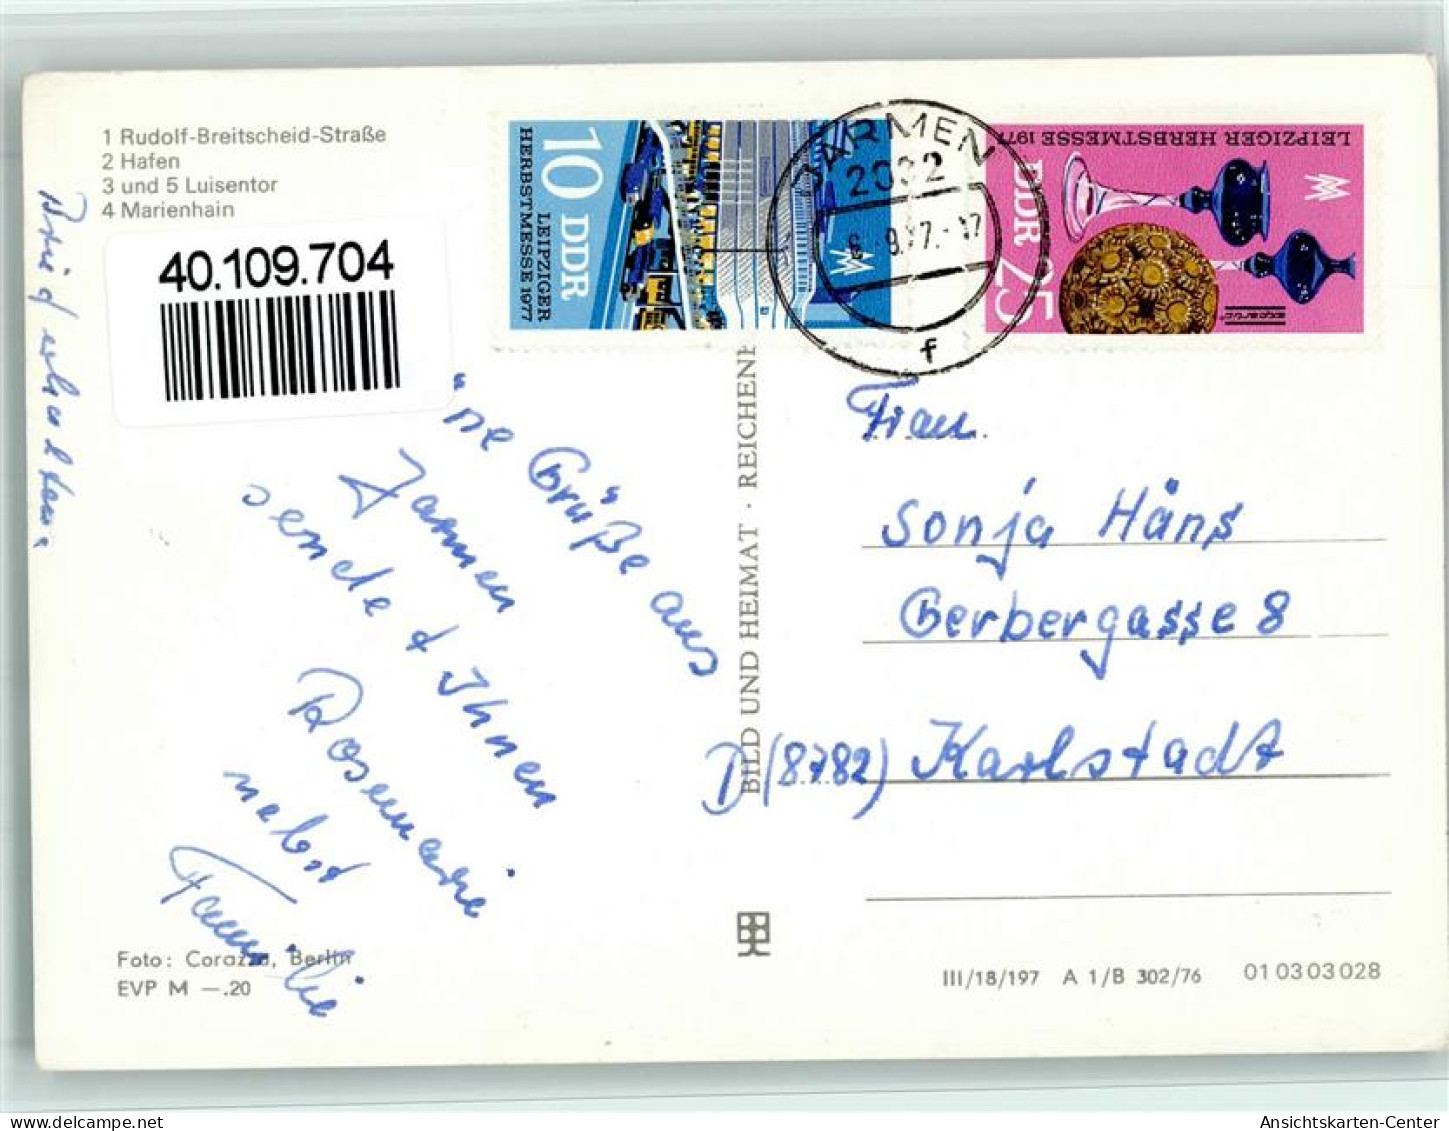 1 Rudolf-Breitscheid-Straße
2 Hafen
3 und 5 Luisentor
4 Marienhain
40.109.704
10 DDR
LEIPZIGER
HERBSTMESSE 1977
JARMEN
2032
f
LEIPZIGER HERBSTMESSE 1977
DDR 25
expertic
erhalten
"ne Grüße" aus
Jarmen
sende Ihnen
Rosemarie
nebst
Familie
BILD UND HEIMAT · REICHENB
Frau
Sonja Häns
Gerbergasse 8
D (8782) Karlstadt
Foto: Corazza, Berlin
EVP M —.20
III/18/197 A 1/B 302/76 01 03 03 028
Ansichtskarten-Center